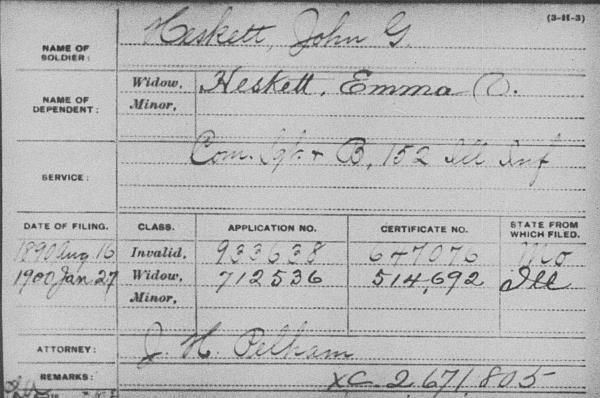 (3-11-3)
NAME OF SOLDIER: Heskett, John G.
NAME OF DEPENDENT: Widow, Heskett, Emma
Minor,
SERVICE: Com. Sgt. + B, 152 Ill Inf
DATE OF FILING. CLASS. APPLICATION NO. CERTIFICATE NO. STATE FROM WHICH FILED.
1890 Aug. 16 Invalid, 933638 647076 Mo
1900 Jan. 27 Widow, 712536 514,692 Ill
Minor,
ATTORNEY: J. H. Pelham
REMARKS: XC 2671805